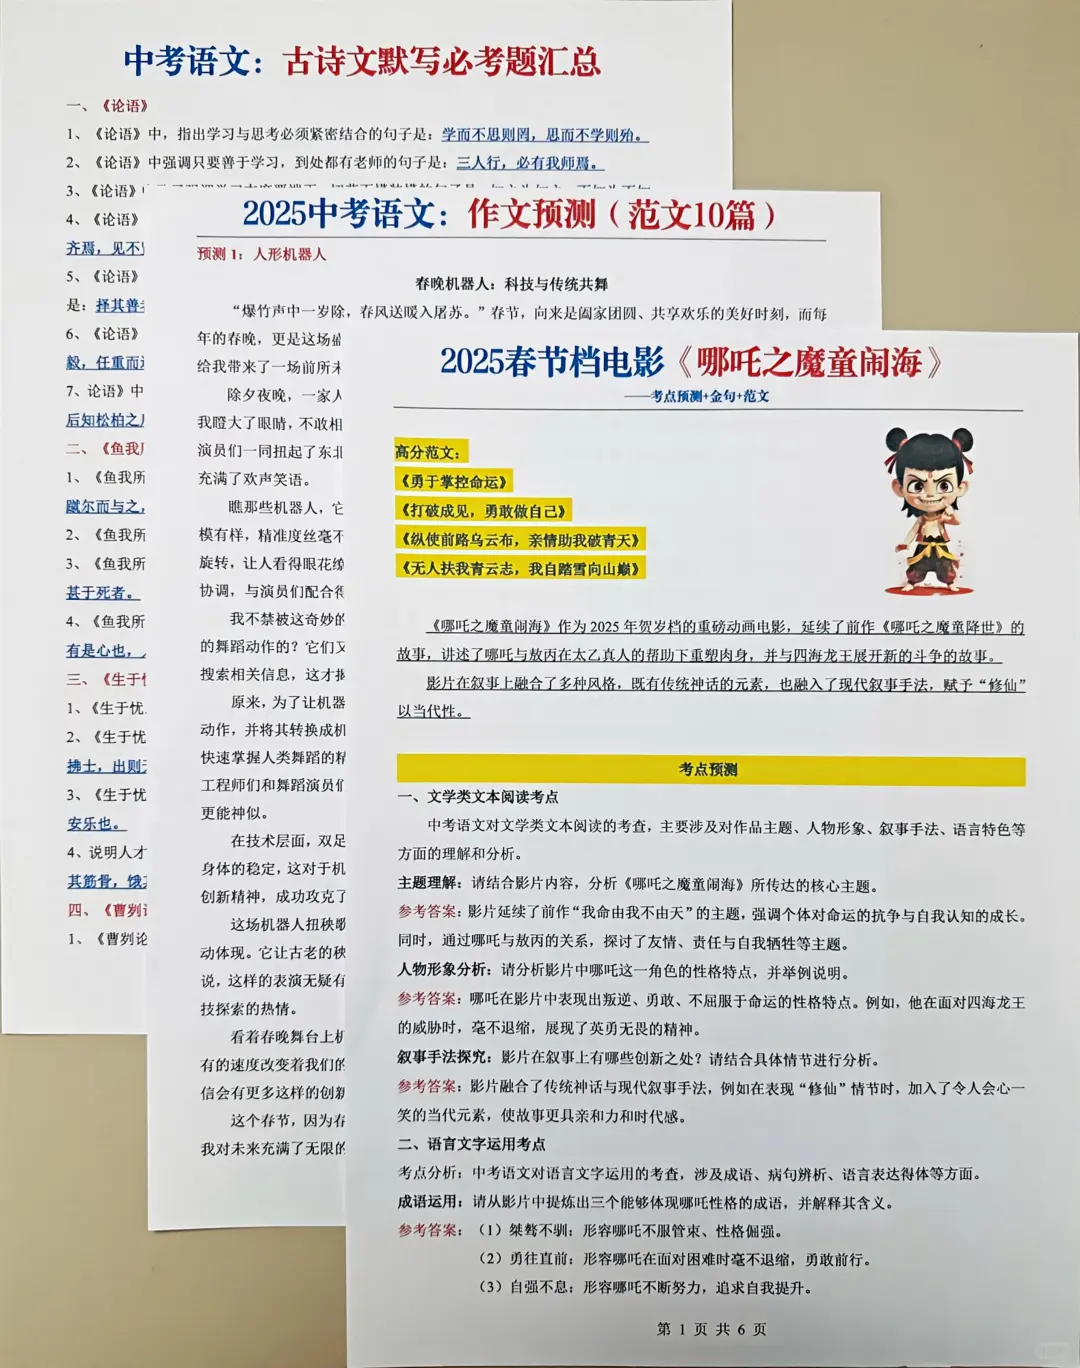 中考语文：古诗文默写必考题汇总
一、《论语》
1、《论语》中，指出学习与思考必须紧密结合的句子是：学而不思则罔，思而不学则殆。
2、《论语》中强调只要善于学习，到处都有老师的句子是：三人行，必有我师焉。
3、《论语》
4、《论语》
齐焉，见不
5、《论语》
是：择其善
6、《论语》
毅，任重而
7、论语》中
后知松柏之
二、《鱼我
1、《鱼我所
蹴尔而与之，
2、《鱼我所
3、《鱼我所
甚于死者。
4、《鱼我所
有是心也，
三、《生于
1、《生于忧
2、《生于忧
拂士，出则
3、《生于忧
安乐也。
4、说明人才
其筋骨，饿
四、《曹刿
1、《曹刿论
2025中考语文：作文预测（范文10篇）
预测 1：人形机器人
春晚机器人：科技与传统共舞
“爆竹声中一岁除，春风送暖入屠苏。”春节，向来是阖家团圆、共享欢乐的美好时刻，而每
年的春晚，更是这场
给我带来了一场前所未
除夕夜晚，一家人
我瞪大了眼睛，不敢相
演员们一同扭起了东北
充满了欢声笑语。
瞧那些机器人，它
模有样，精准度丝毫不
旋转，让人看得眼花缭
协调，与演员们配合得
我不禁被这奇妙的
的舞蹈动作的？它们又
搜索相关信息，这才
原来，为了让机器
动作，并将其转换成机
快速掌握人类舞蹈的精
工程师们和舞蹈演员们
更能神似。
在技术层面，双足
身体的稳定，这对于机
创新精神，成功攻克了
这场机器人扭秧歌
动体现。它让古老的秧
说，这样的表演无疑有
技探索的热情。
看着春晚舞台上机
有的速度改变着我们的
信会有更多这样的创新
这个春节，因为春
我对未来充满了无限的
2025春节档电影《哪吒之魔童闹海》
——考点预测+金句+范文
高分范文：
《勇于掌控命运》
《打破成见，勇敢做自己》
《纵使前路乌云布，亲情助我破青天》
《无人扶我青云志，我自踏雪向山巅》
《哪吒之魔童闹海》作为 2025 年贺岁档的重磅动画电影，延续了前作《哪吒之魔童降世》的
故事，讲述了哪吒与敖丙在太乙真人的帮助下重塑肉身，并与四海龙王展开新的斗争的故事。
影片在叙事上融合了多种风格，既有传统神话的元素，也融入了现代叙事手法，赋予“修仙”
以当代性。
考点预测
一、文学类文本阅读考点
中考语文对文学类文本阅读的考查，主要涉及对作品主题、人物形象、叙事手法、语言特色等
方面的理解和分析。
主题理解：请结合影片内容，分析《哪吒之魔童闹海》所传达的核心主题。
参考答案：影片延续了前作“我命由我不由天”的主题，强调个体对命运的抗争与自我认知的成长。
同时，通过哪吒与敖丙的关系，探讨了友情、责任与自我牺牲等主题。
人物形象分析：请分析影片中哪吒这一角色的性格特点，并举例说明。
参考答案：哪吒在影片中表现出叛逆、勇敢、不屈服于命运的性格特点。例如，他在面对四海龙王
的威胁时，毫不退缩，展现了英勇无畏的精神。
叙事手法探究：影片在叙事上有哪些创新之处？请结合具体情节进行分析。
参考答案：影片融合了传统神话与现代叙事手法，例如在表现“修仙”情节时，加入了令人会心一
笑的当代元素，使故事更具亲和力和时代感。
二、语言文字运用考点
考点分析：中考语文对语言文字运用的考查，涉及成语、病句辨析、语言表达得体等方面。
成语运用：请从影片中提炼出三个能够体现哪吒性格的成语，并解释其含义。
参考答案：（1）桀骜不驯：形容哪吒不服管束、性格倔强。
（2）勇往直前：形容哪吒在面对困难时毫不退缩，勇敢前行。
（3）自强不息：形容哪吒不断努力，追求自我提升。
第 1 页 共 6 页